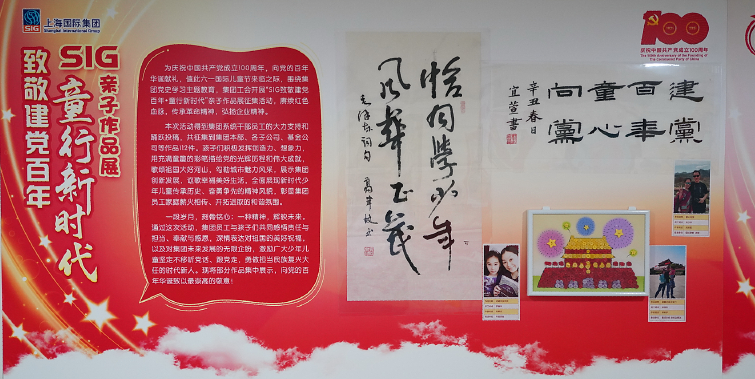 SIG
上海国际集团
Shanghai International Group
致敬建党百年
SIG
童行新时代
亲子作品展
为庆祝中国共产党成立100周年，向党的百年华诞献礼，值此六一国际儿童节来临之际，围绕集团党史学习主题教育，集团工会开展“SIG致敬建党百年•童行新时代”亲子作品展征集活动，赓续红色血脉，传承革命精神，弘扬企业精神。
本次活动得到集团系统干部员工的大力支持和踊跃投稿，共征集到集团本部、各子公司、基金公司等作品112件。孩子们积极发挥创造力、想象力，用充满童真的彩笔描绘党的光辉历程和伟大成就，歌颂祖国大好河山，勾勒城市魅力风采，展示集团创新发展，讴歌幸福美好生活，全面展现新时代少年儿童传承历史、奋勇争先的精神风貌，彰显集团员工家庭薪火相传、开拓进取的和谐氛围。
一段岁月，刻骨铭心；一种精神，辉映未来。通过这次活动，集团员工与孩子们共同感悟责任与担当、奉献与感恩，深情表达对祖国的美好祝福，以及对集团未来发展的无限企盼，激励广大少年儿童坚定不移听党话、跟党走，勇做担当民族复兴大任的时代新人。现将部分作品集中展示，向党的百年华诞致以最崇高的敬意！
恰同学少年
风华正茂
毛泽东词句
100
庆祝中国共产党成立100周年
The 100th Anniversary of the Founding of
The Communist Party of China
建党
百年
童心
向党
辛丑春日
宜萱书